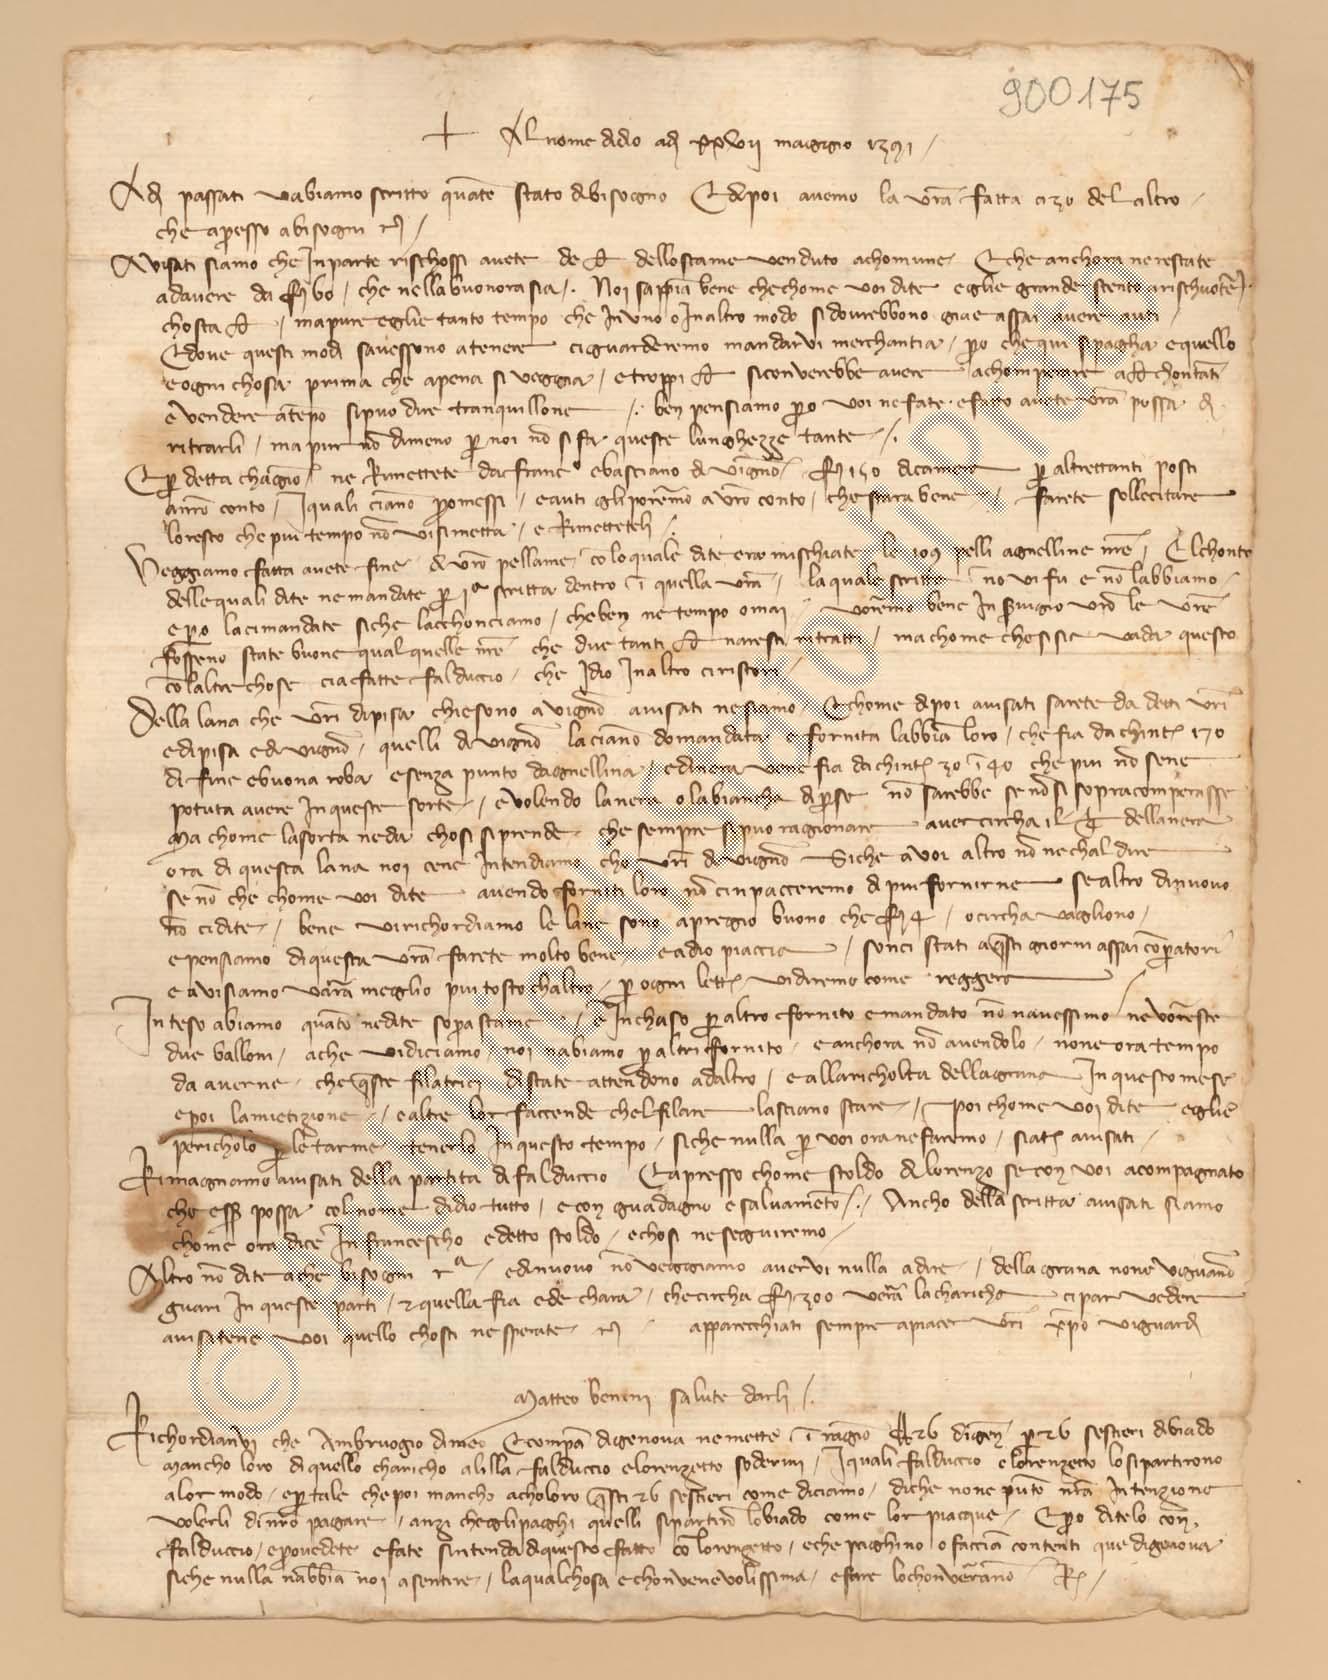 900175
+ Al nome di dio adj xxvij maggio 1391
Adj passati v'abiamo scritto quāto stato di bisogno E di poi avemo la vrā fatta a 30 del altro
che apresso a bisogni rj
Avisati siamo che in parte rischossi avete de d. dello stame venduto a chomune E che anchora ne restate
ad avere da f. bo che nella buonora sia. Noi sappiā bene che chome voi dite egli e grande stento a rischuotere
chosta d. ma pure egli e tanto tempo che in uno o in altro modo si dovrebbono gia e assai avere auti
E dove questi modi s'avessono a tenere ci guarderemo mandarvi merchantia, po che qui si pagha e quello
e ogni chosa prima che apena si veggia, e troppi d. si converebbe avere a chomperare a d. chontāti
e vendere a tēpo si puo dire tranquillone. ben pensiamo po voi ne fate e fatto avete vrā possa di
ritrarli, ma pur nō dimeno p noi nō si fa queste lunghezze tante
E p detta chagiō ne rimettete da franc° e basciano di vignōe f. 150 di camera p altrettanti posti
a nrō conto, i quali ciano pomessi, e auti gli porēmo a vrō conto, che stara bene farete sollecitare
loresto che piu tempo nō vi si metta, e rimetteteli
Veggiamo fatta avete fine di vrō pellame colo quale dite era mischiate le 109 pelli agnelline nrē, E l chonto
delle quali dite ne mandate p 1ª scritta dentro ī quella vrā, la quale scritta no vi fu e nō l'abbiamo
e po la ci mandate siche l'acchonciamo, che ben ne tempo omai. vorēmo bene in svigio vrō le vrē
fosseno state buone qual quelle nrē che due tanti d. n'aresti ritratti, ma chome che si sia vada questo
cō l'altre chose ci a fatte falduccio, che Idio in altro ci ristori
Della lana che vrī di pisa chiesono a vignōe avisati ne siamo, E chome di poi avisati sarete da detti vrī
e di pisa e di vignōe, quelli di vignōe la ciano domandata e fornita l'abbiā loro, che fia da chint. 170
di fine e buona roba e senza punto d'agnellina, e di nera vene fia da chint. 30 ī 40 che piu nō sene
potuta avere in queste sorte, e volendo la nera o la biancha di pse nō sarebbe se nō si sopracomperasse
Ma chome la sorta ne da chosi si prende, che sempre si puo ragionare aver circha il ¼ della nera
ora di questa lana noi cene intendiamo cho vrī di vignōe Siche a voi altro nō ne chal dire
se nō che chome voi dite avendo forniti loro nō c'inpacceremo di piu fornirne se altro di nuovo
nō ci dite, bene vi richordiamo le lane sono a pregio buono che f. 4 o circha vagliono
e pensiamo di questa vrā farete molto bene e a dio piaccia, sonci stati a qsti giorni assai cōpatori
e avisiamo varā meglio piu tosto ch'altro, p ogni lett. vi diremo come reggera
Inteso abiamo quāto ne dite sopra stame, e in chaso p altro fornito e mandato nō n'avessimo ne vorēste
due balloni, a che vi diciamo noi n'abiamo p altri fornito, e anchora nō avendolo none ora tempo
da averne, che qste filatrici di state attendono ad altro, e alla richolta della grana in questo mese
e poi la mietizione, e altre lor faccende che l filare lasciano stare, poi chome voi dite egli e
pericholo p le tarme tenerlo in questo tempo, siche nulla p voi ora ne faremo, siat. avisati
Rimagnamo avisati della partita di falduccio E apresso chome stoldo di lorenzo se con voi acompagnato
che esser possa col nome di dio tutto, e con guadagno e salvamēto. Ancho della scritta avisati siamo
chome ora dice in francescho e detto stoldo, e chosi ne seguiremo
Altro nō dite a che bisogni rª, e di nuovo nō veggiamo avervi nulla a dire, della grana none v'iguano
guari in queste parti, e quella fia e de chara, che circha f. 300 verrā la charicha ci par vedere
avisatene voi quello chosti ne sperate rj apparecchiati sempre a piacer vrī xpo vi guardi
Matteo benini salute d'arli
Richordianvi che Ambruogio di meo E compā di genova ne mette ī ragiō lb 26 di geñ p 26 sestieri di biado
mancho loro di quello charicho a lilla falduccio e lorenzetto soderini, i quali falduccio e lorenzetto lo si partirono
a lor modo, e p tale che poi mancho a choloro qsti 26 sestieri come diciamo, di che none pūto nrā intenzione
volerli di nrō pagare, anzi che gli paghi quelli si partirō lo biado come lor piacque, E po ditelo con
falduccio, e provedete e fate s'intenda di questo fatto cō lorenzetto, e che paghino o facciā contenti que di genova
siche nulla n'abbiā noi a sentire, la qual chosa e chonvenevolissima, e fare lo chonverāno R.